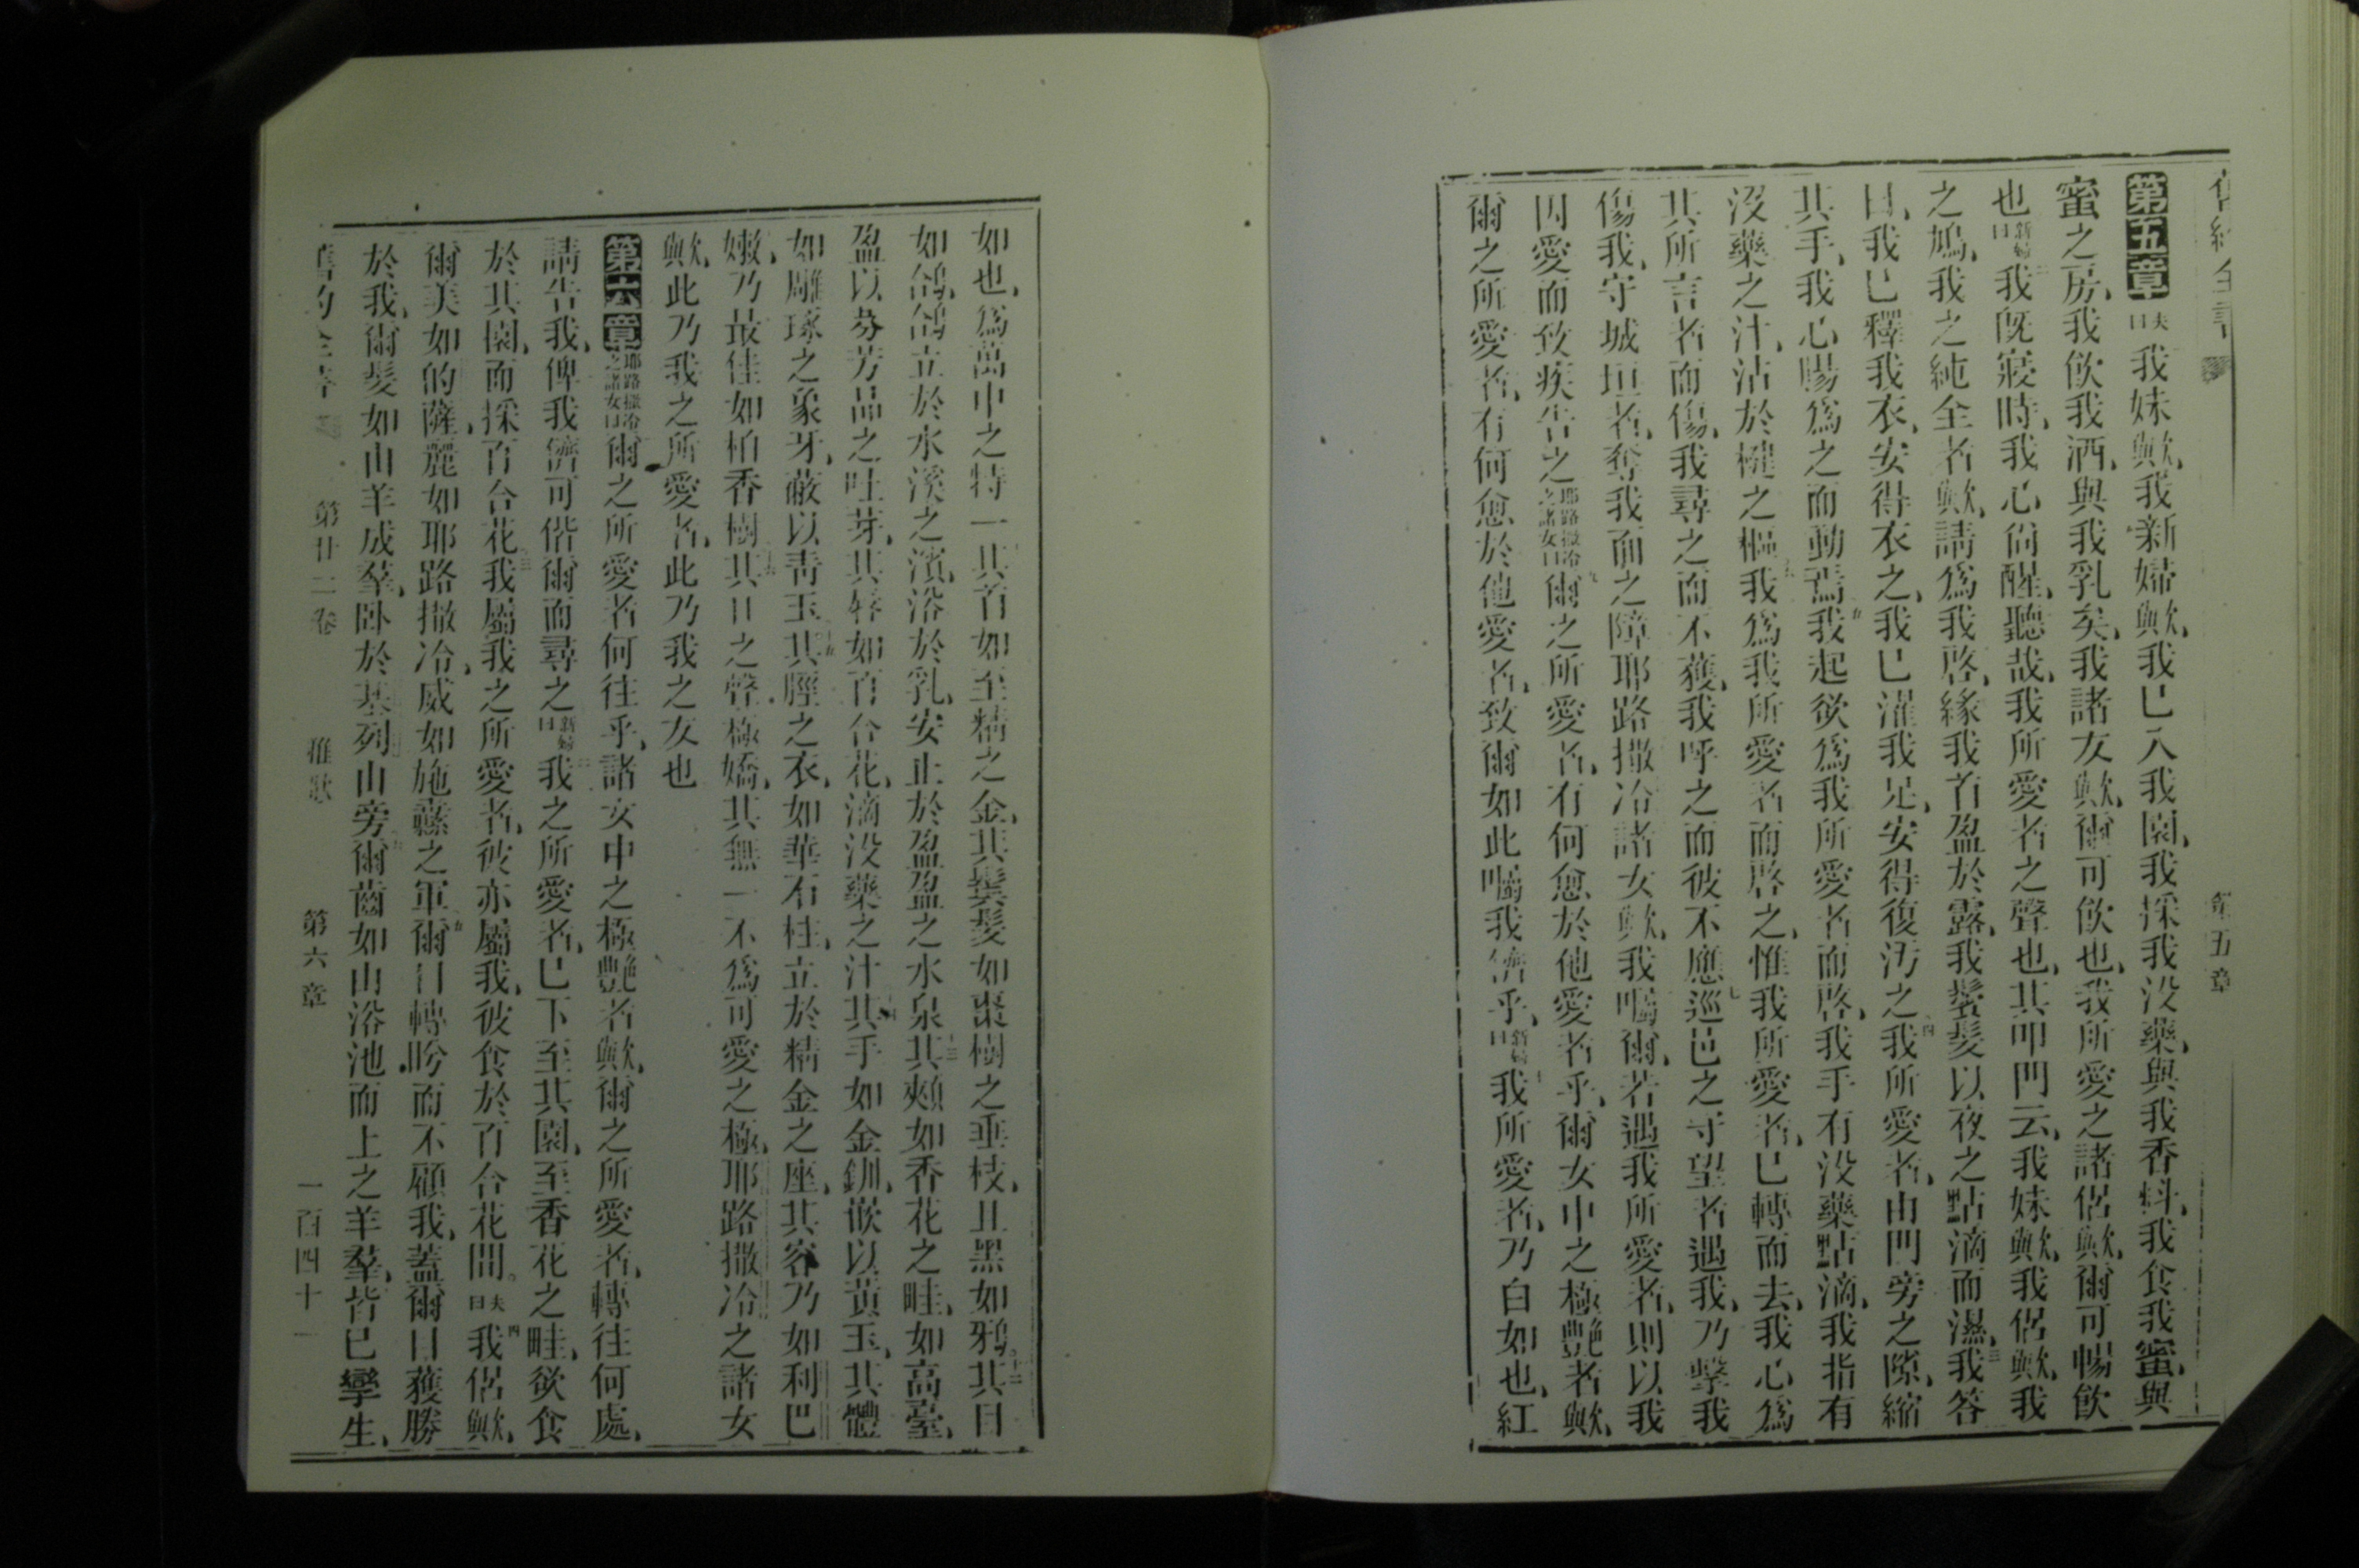 第五章
第五章夫曰我妹歟、我新婦歟、我已入我園、我採我没藥、與我香料、我食我蜜、與
蜜之房、我飲我酒、與我乳矣、我諸友歟、爾可飲也、我所愛之諸侶歟、爾可暢飲
也新婦曰二我旣寢時、我心尙醒、聽哉、我所愛者之聲也、其叩門云、我妹歟、我侶歟、我
之鳩、我之純全者歟、請爲我啓、緣我首盈於露、我鬢髮以夜之點滴而濕、三我答
曰、我已釋我衣、安得衣之、我已濯我足、安得復汚之、四我所愛者、由門旁之隙、縮
其手、我心腸爲之而動焉、五我起欲爲我所愛者而啓、我手有没藥點滴、我指有
没藥之汁、沾於楗之樞、六我爲我所愛者而啓之、惟我所愛者、已轉而去、我心爲
其所言者而傷、我尋之而不獲、我呼之而彼不應、七巡邑之守望者遇我、乃擊我
傷我、守城垣者、奪我面之障、耶路撒冷諸女歟、我囑爾、若遇我所愛者、則以我
因愛而致疾告之耶路撒冷之諸女曰九爾之所愛者、有何愈於他愛者乎、爾女中之極艷者歟、
爾之所愛者、有何愈於他愛者、致爾如此囑我儕乎、新婦曰十我所愛者、乃白如也、紅
如也、爲萬中之特一、其首如至精之金、其鬢髮如棗樹之垂枝、且黑如鴉、十二其目
如鴿、鴿立於水溪之濱、浴於乳、安止於盈盈之水泉、十三其頰如香花之畦、如高臺、
盈以芬芳品之吐芽、其唇如百合花、滴没藥之汁、十四其手如金釧、嵌以黃玉、其體
如雕琢之象牙、蔽以靑玉、十五其脛之衣、如華石柱、立於精金之座、其容乃如利巴
嫩、乃最佳如柏香樹、十六其口之聲極嬌、其無一不爲可愛之極、耶路撒冷之諸女
歟、此乃我之所愛者、此乃我之友也
第六章耶路撒冷之諸女曰爾之所愛者何往乎、諸女中之極艷者歟、爾之所愛者、轉往何處、
請告我、俾我儕可偕爾而尋之新婦曰二我之所愛者、已下至其園、至香花之畦、欲食
於其園、而採百合花、三我屬我之所愛者、彼亦屬我、彼食於百合花間。夫曰四我侶歟、
爾美如的薩、麗如耶路撒冷、威如施纛之軍、五爾目轉盻而不顧我、蓋爾目獲勝
於我、爾髮如山羊成羣、臥於基列山旁、六爾齒如由浴池而上之羊羣、皆已孿生、
第廿二卷 雅歌 第六章 一百四十一